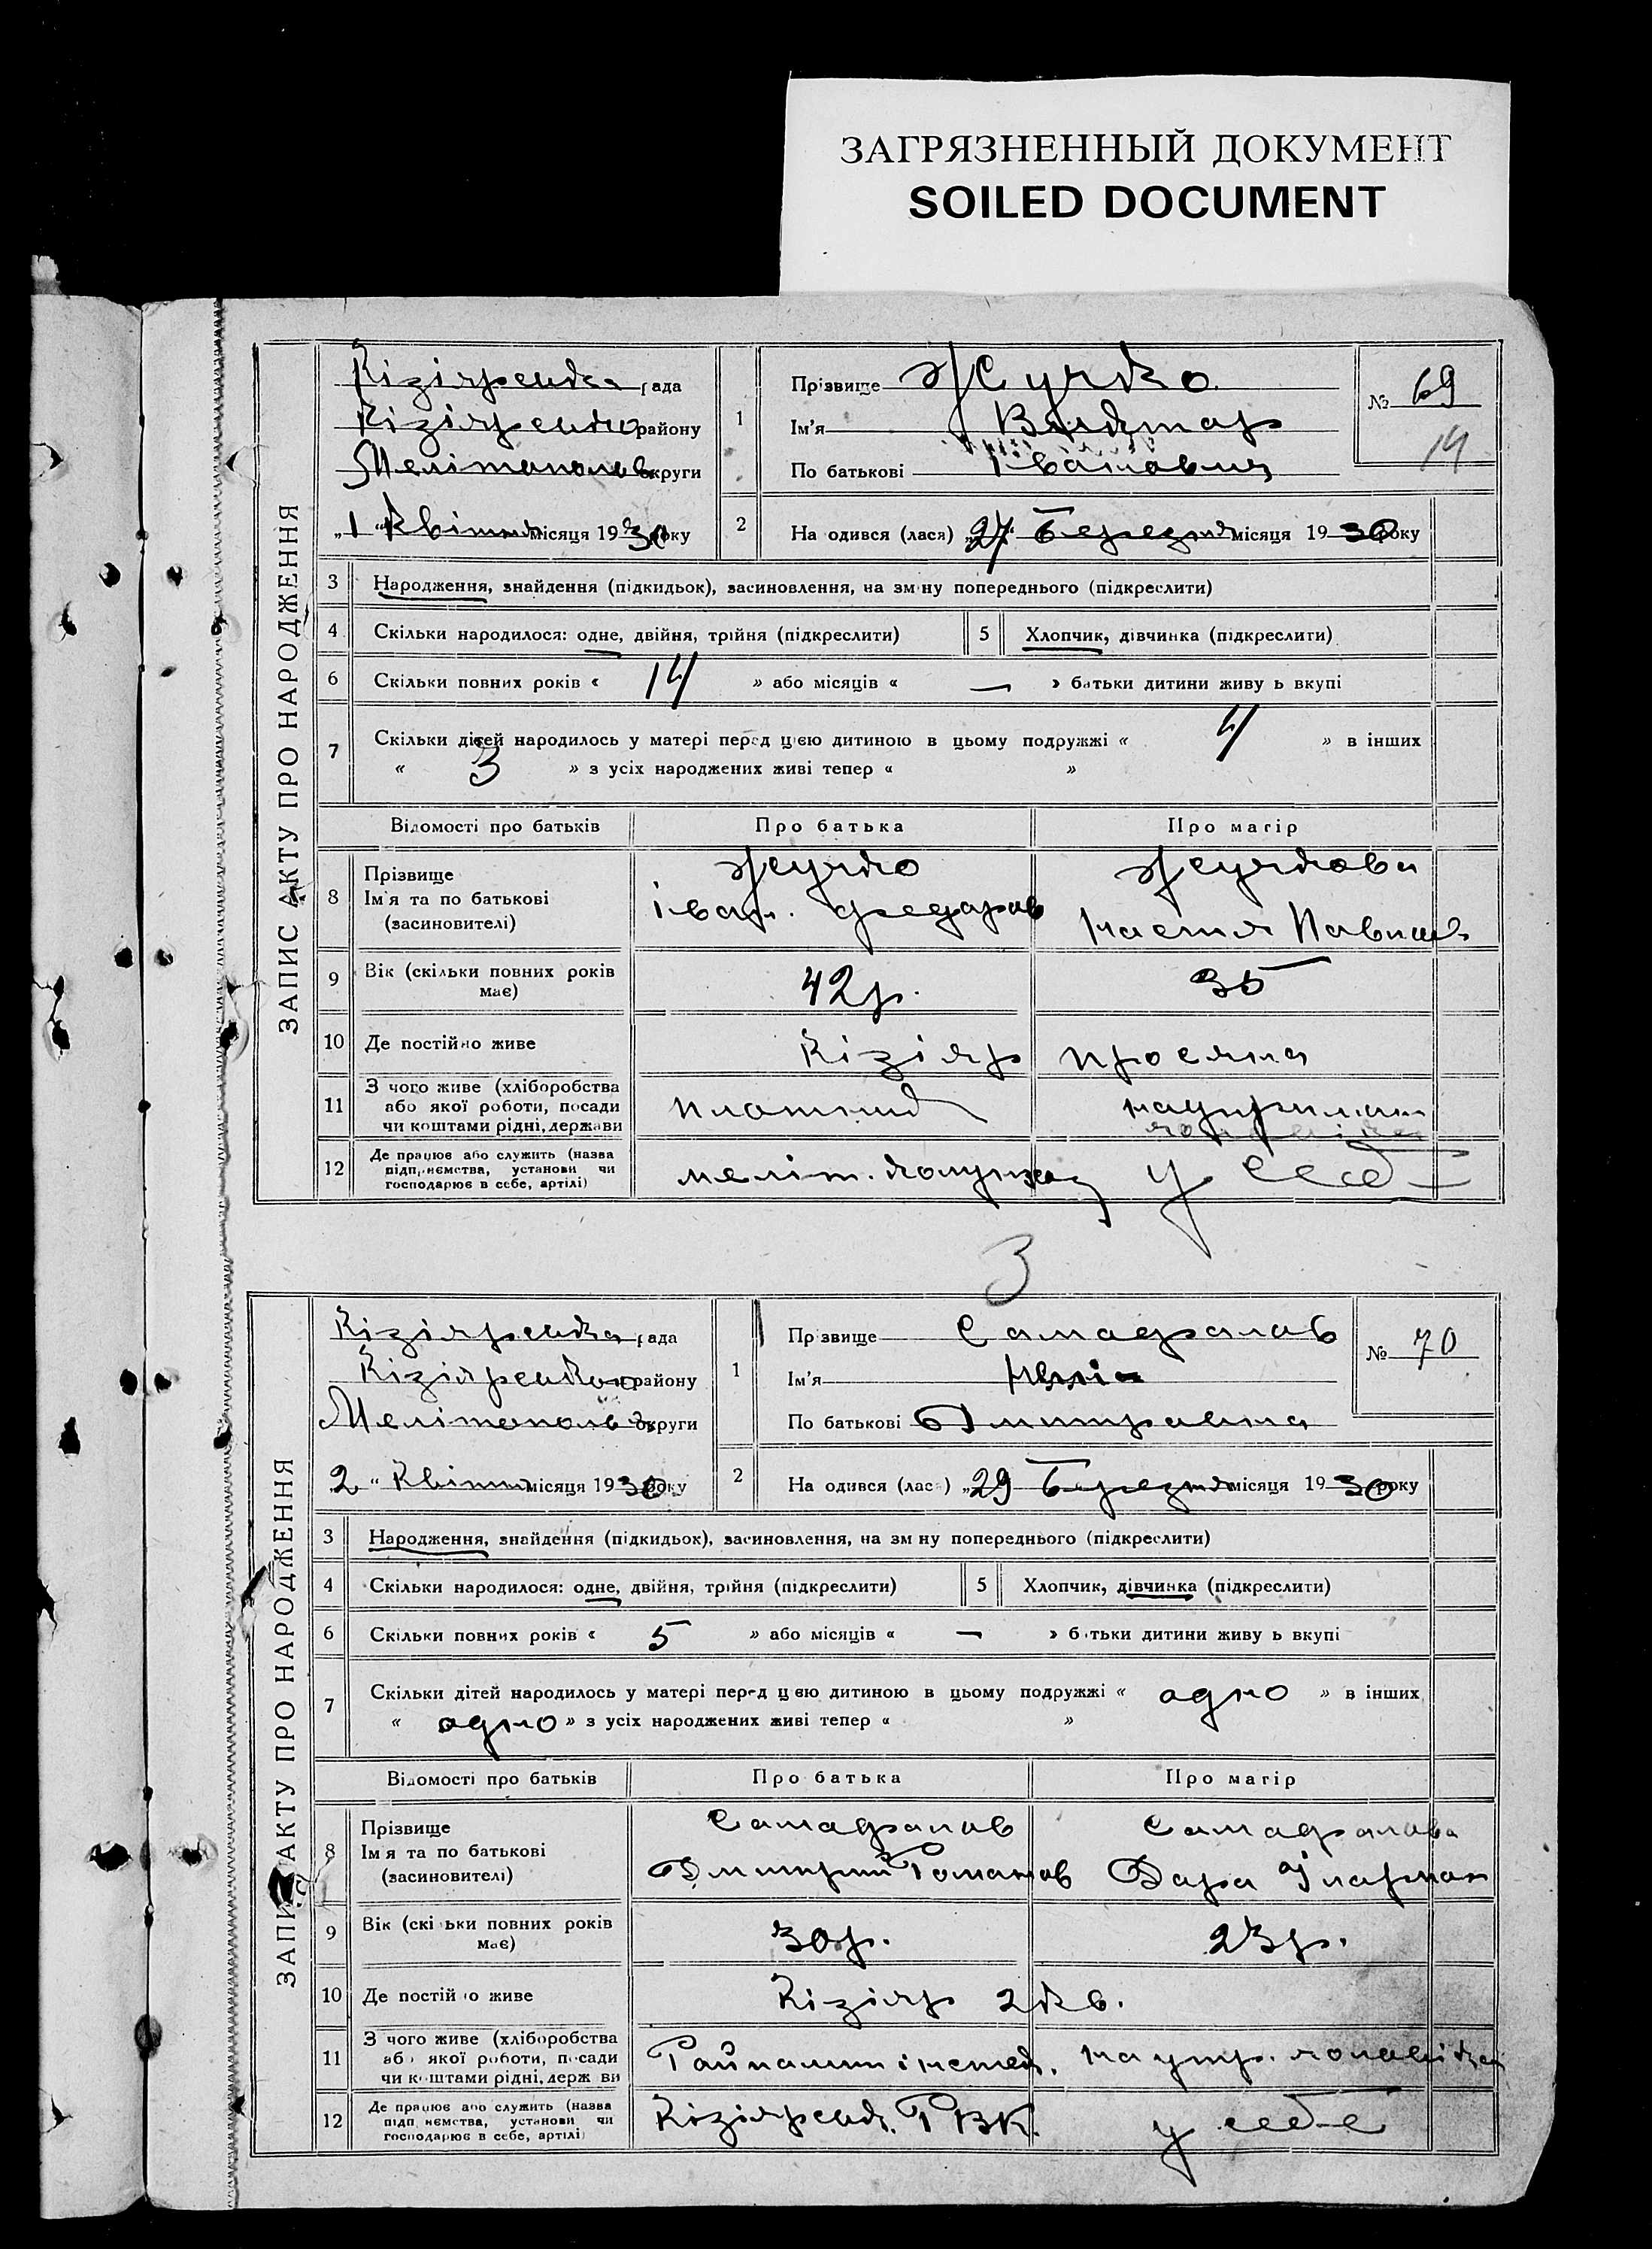 ЗАГРЯЗНЕННЫЙ ДОКУМЕНТ
SOILED DOCUMENT
ЗАПИС АКТУ ПРО НАРОДЖЕННЯ
Кізіярська рада
Кізіярського району
Мелітопольс округи
„1“ Квітня місяця 1930 року
1
Прізвище Жучко
Ім'я
По батькові Іванович
№ 69
14
2 На одився (лася) „27“ Березня місяця 1930 року
3 Народження, знайдення (підкидьок), засиновлення, на зм ну попереднього (підкреслити)
4 Скільки народилося: одне, двійня, трійня (підкреслити) 5 Хлопчик, дівчинка (підкреслити)
6 Скільки повних років « 14 » або місяців « — » батьки дитини живу ь вкупі
7 Скільки дітей народилось у матері перед цією дитиною в цьому подружжі « 4 » в інших
« 3 » з усіх народжених живі тепер « »
Відомості про батьків Про батька Про матір
8 Прізвище Ім'я та по батькові (засиновителі)
Жучко Жучкова
Іван. Федоров Настя Павлов
9 Вік (скільки повних років має) 42р. 35
10 Де постійно живе Кізіяр
11 З чого живе (хліборобства
або якої роботи, посади
чи коштами рідні, держави
Плотник на утриман
12 Де працює або служить (назва
підприємства, установи чи
господарює в себе, артілі)
меліт. у себе
3
ЗАПИС АКТУ ПРО НАРОДЖЕННЯ
Кізіярська рада
Кізіярського району
Мелітопольс округи
2 “ Квітня місяця 1930 року
1
Пр звище Самафалов
Ім'я Неллі
По батькові Дмитровна
№ 70
2 На одився (лас ) „29 Березня місяця 1930 року
3 Народження, знайдення (підкидьок), засиновлення, на зм ну попереднього (підкреслити)
4 Скільки народилося: одне, двійня, трійня (підкреслити) 5 Хлопчик, дівчинка (підкреслити)
6 Скільки повних років « 5 » або місяців « — » б тьки дитини живу ь вкупі
7 Скільки дітей народилось у матері перед цією дитиною в цьому подружжі « одно » в інших
« одно » з усіх народжених живі тепер « »
Відомості про батьків Про батька Про матір
8 Прізвище Ім'я та по батькові (засиновителі)
Самафалов Самафалова
Дмитрий Романов Дара Іларион
9 Вік (скі ьки повних років має) 30р. 23р.
10 Де постій о живе Кізіяр 2 кв.
11 З чого живе (хліборобства
або якої роботи, посади
чи коштами рідні, держ ви
на утр. чоловіка
12 Де працює або служить (назва
підп иємства, установи чи
господарює в себе, артілі)
Кізіярськ. РВК. у себе